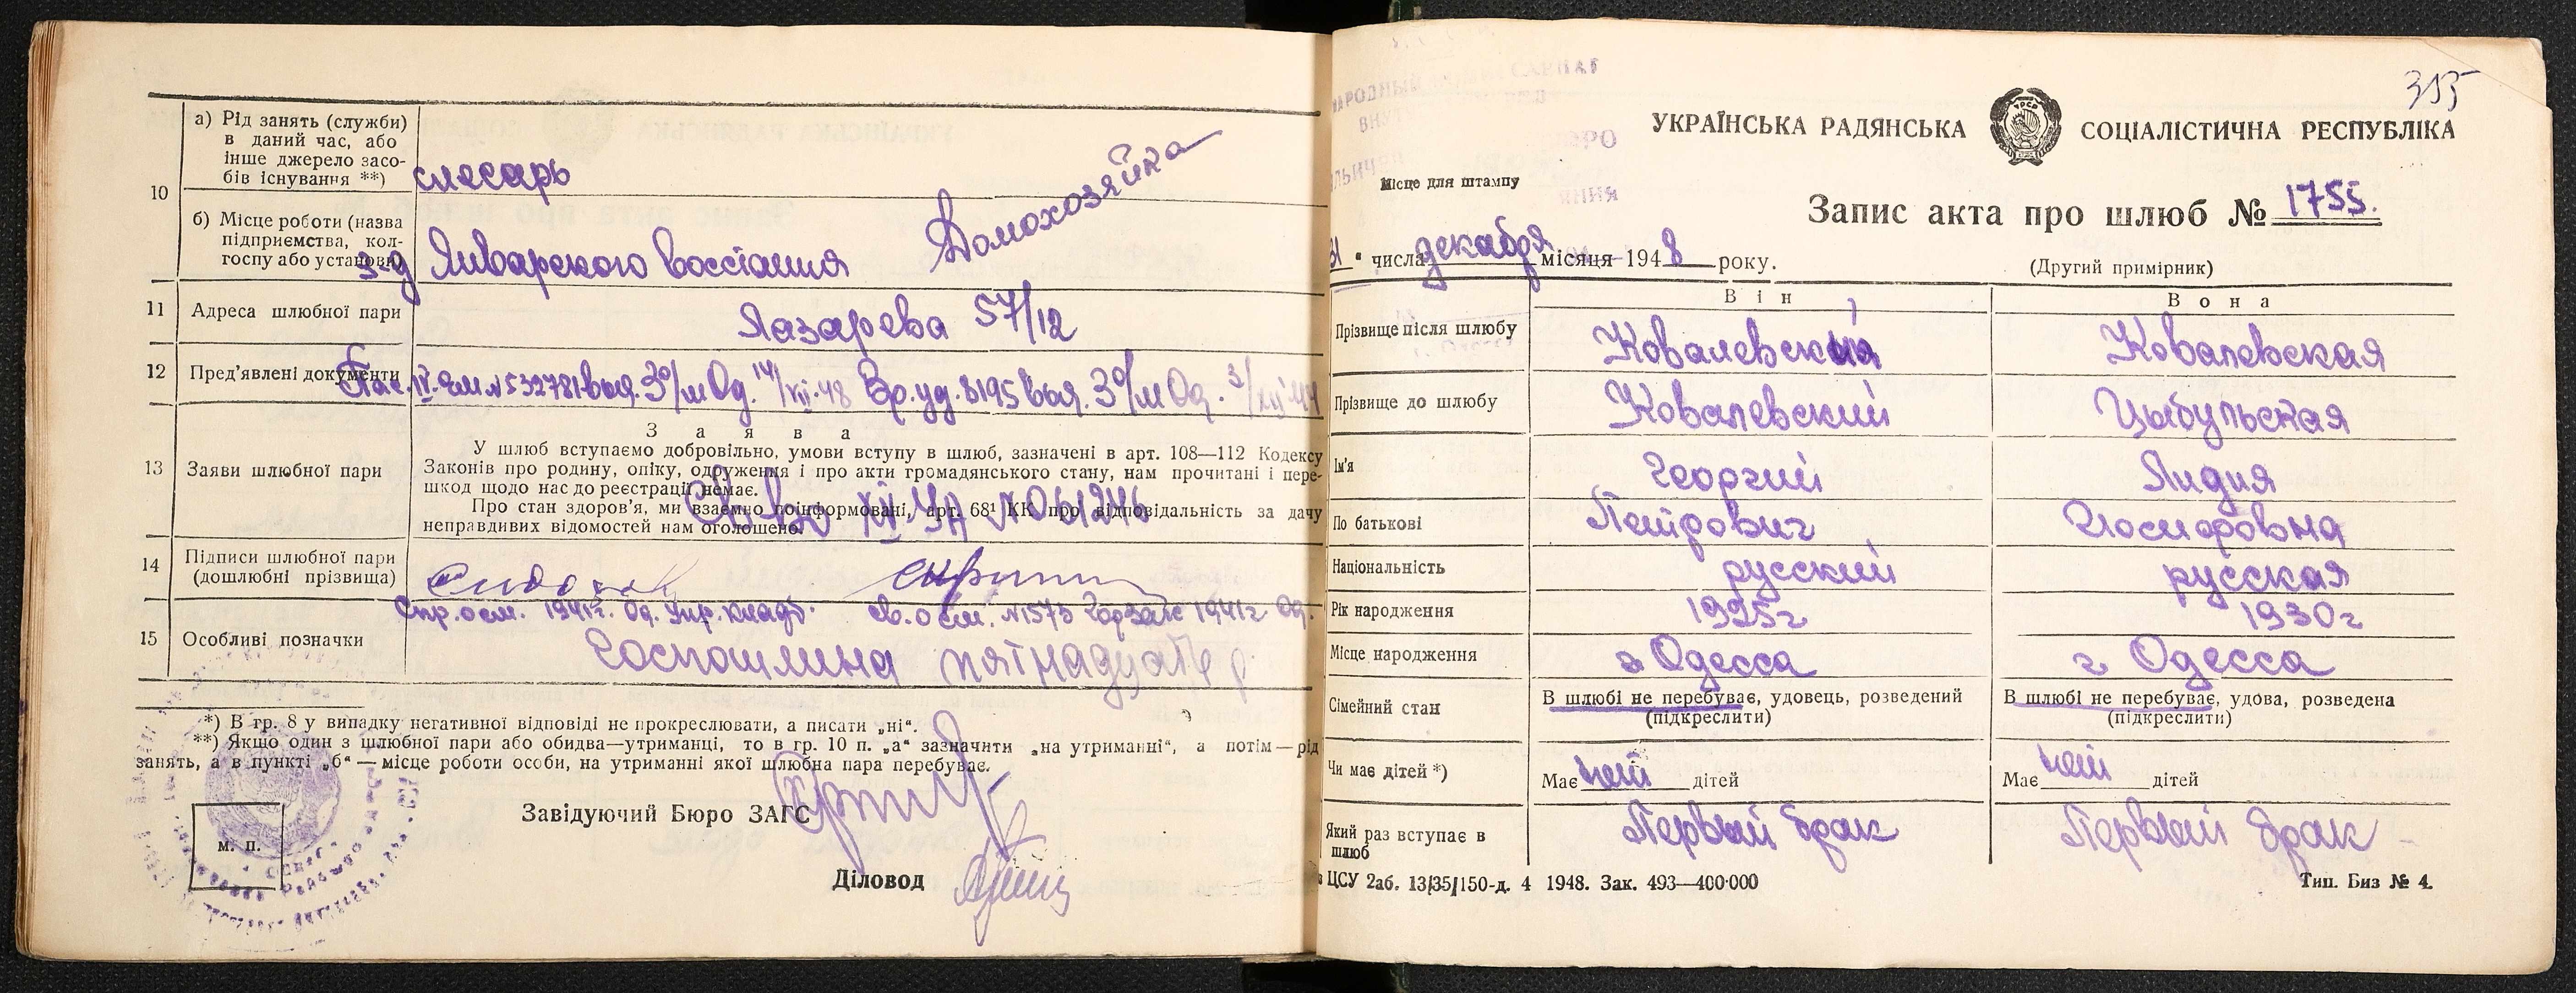 а) Рід занять (служби)
в даний час, або
інше джерело засо-
бів існування **)
слесарь
10
б) Місце роботи (назва
підприємства, кол-
госпу або установи)
з-д Январского восстания
Домохозяйка
11 Адреса шлюбної пари
Лазарева 57/12
12 Пред'явлені документи
Пас. IV-ЯМ №532781 выд. 3 о/м Од. 14/XII-48 Вр. уд. 8195 выд. 3 о/м Од. 3/XII 44
З а я в а
13 Заяви шлюбної пари
У шлюб вступаємо добровільно, умови вступу в шлюб, зазначені в арт. 108—112 Кодексу
Законів про родину, опіку, одруження і про акти громадянського стану, нам прочитані і пере-
шкод щодо нас до реєстрації немає.
Про стан здоров'я, ми взаємно поінформовані, арт. 68¹ КК про відповідальність за дачу
неправдивих відомостей нам оголошено.
№ 061246
14 Підписи шлюбної пари
(дошлюбні прізвища)
15 Особливі позначки
1941г. Од. №1573 1941г Од.
Госпошлина пятнадцать р
*) В гр. 8 у випадку негативної відповіді не прокреслювати, а писати „ні“.
**) Якщо один з шлюбної пари або обидва—утриманці, то в гр. 10 п. „а“ зазначити „на утриманні“, а потім—рід
занять, а в пункті „б“—місце роботи особи, на утриманні якої шлюбна пара перебуває.
Завідуючий Бюро ЗАГС
м. п.
Діловод
315
УКРАЇНСЬКА РАДЯНСЬКА СОЦІАЛІСТИЧНА РЕСПУБЛІКА
Місце для штампу
Запис акта про шлюб № 1755.
31 " числа декабря місяця 1948 року.
(Другий примірник)
Він Вона
Прізвище після шлюбу Ковалевский Ковалевская
Прізвище до шлюбу Ковалевский Цыбульская
Ім'я Георгий Лидия
По батькові Петрович Иосифовна
Національність русский русская
Рік народження 1925г 1930г
Місце народження г. Одесса г. Одесса
Сімейний стан
В шлюбі не перебуває, удовець, розведений
(підкреслити)
В шлюбі не перебуває, удова, розведена
(підкреслити)
Чи має дітей *) Має нет дітей Має нет дітей
Який раз вступає в
шлюб
Первый брак Первый брак
ЦСУ 2аб. 13/35/150-д. 4 1948. Зак. 493—400·000
Тип. Биз № 4.